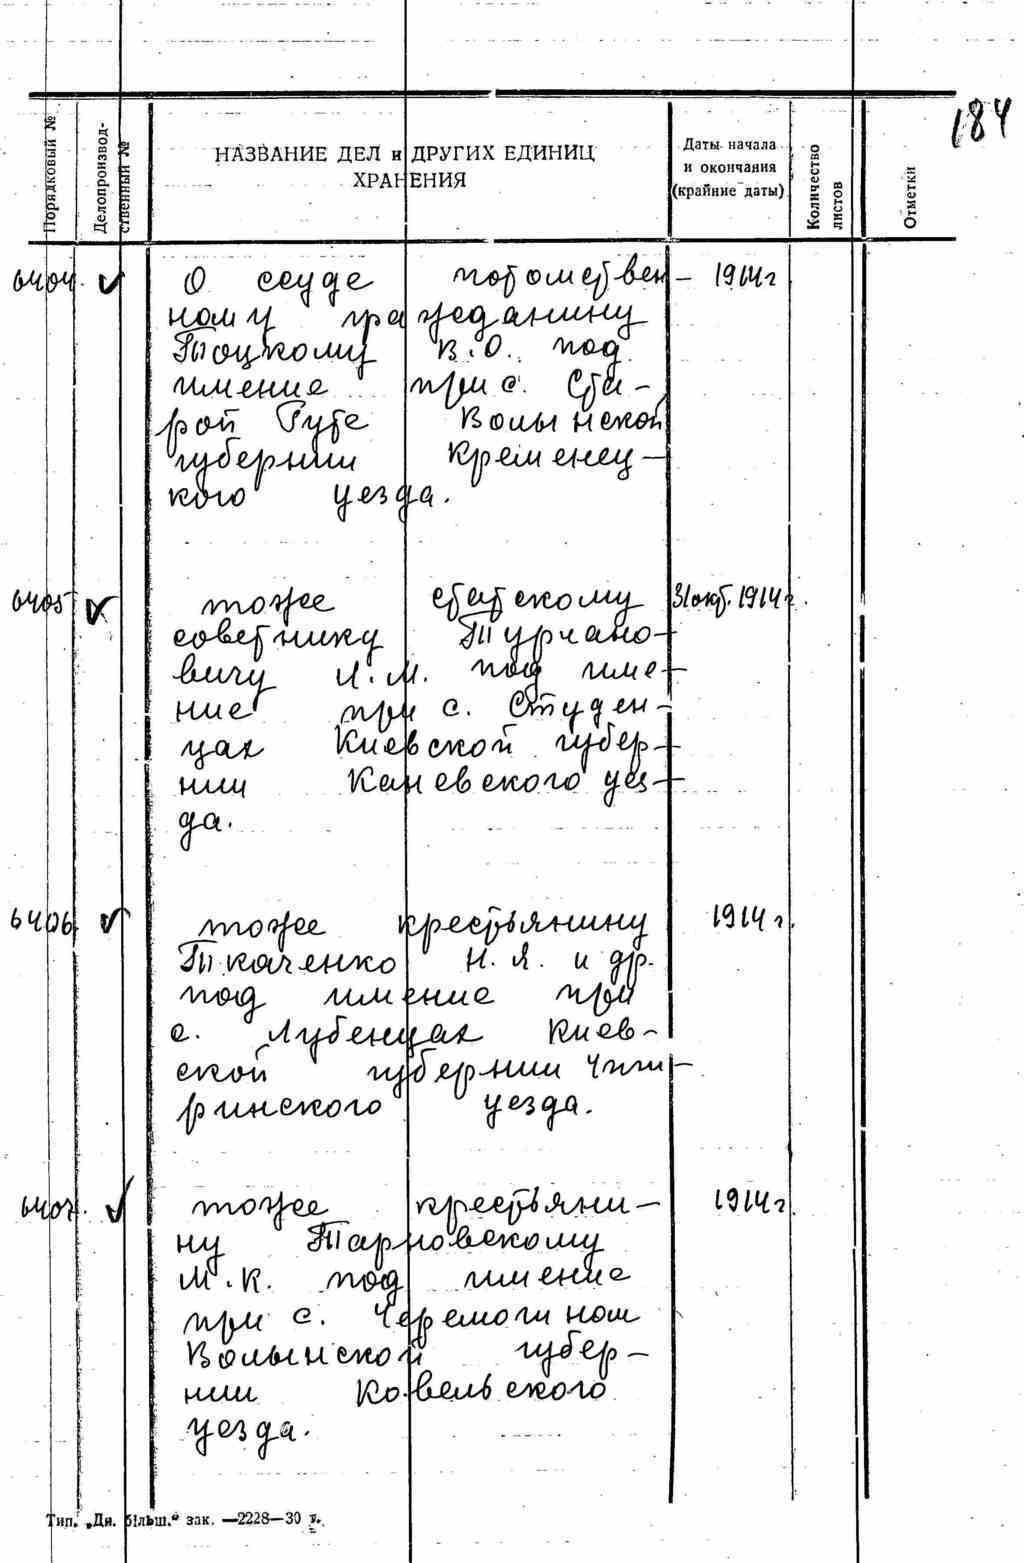 184
Порядковый №
Делопроизвод-
ственный №
НАЗВАНИЕ ДЕЛ и ДРУГИХ ЕДИНИЦ
ХРАНЕНИЯ
Даты начала
и окончания
(крайние даты)
Количество
листов
Отметки
6404. ✓ О ссуде потомствен- 1914г
ному гражданину
Тоцкому В.О. под
имение при с. Ста-
рой Гуте Волынской
губернии Кременец-
кого уезда.
6405 ✓ тоже статскому 31 окт. 1914г.
советнику Турчано-
вичу Л.М. под име-
ние при с. Студен-
цах Киевской губер-
нии Каневского уез-
да.
6406 ✓ тоже крестьянину 1914г.
Ткаченко Н.Я. и др.
под имение при
с. Лубенцах Киев-
ской губернии Чиги-
ринского уезда.
6407. ✓ тоже крестьяни- 1914г.
ну Тарновскому
М.К. под имение
при с. Черемошном
Волынской губер-
нии Ковельского
уезда.
Тип. „Дн. більш." зак. —2228—30 р.